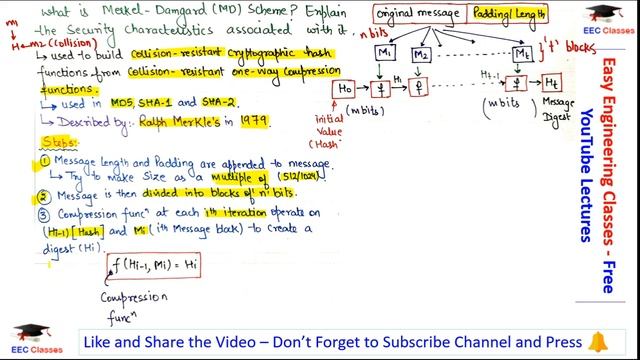 what is Merkel-Damgard (MD) Scheme? Explain
the Security Characteristics associated with it.
m1
H ← m2 (Collision)
↳ used to build collision-resistant cryptographic hash
functions from collision-resistant one-way compression
functions.
↳ used in MD5, SHA-1 and SHA-2.
↳ Described by:- Ralph Merkle's in 1979.
Steps:-
① Message Length and Padding are appended to message.
↳ Try to make size as a multiple of (512/1024).
② Message is then divided into blocks of 'n' bits.
③ Compression funcⁿ at each ith iteration operate on
(Hi-1) [Hash] and Mi (ith Message block) to create a
digest (Hi).
f (Hi-1, Mi) = Hi
Compression
funcⁿ
original message Padding/Length
n bits
M1 M2 Mt } 't' blocks
H0 f Hi f Ht-1 f Ht
(m bits) (m bits) Message
Digest
initial
Value
(Hash
EEC Classes
Easy Engineering Classes - Free
YouTube Lectures
EEC Classes
Like and Share the Video – Don't Forget to Subscribe Channel and Press